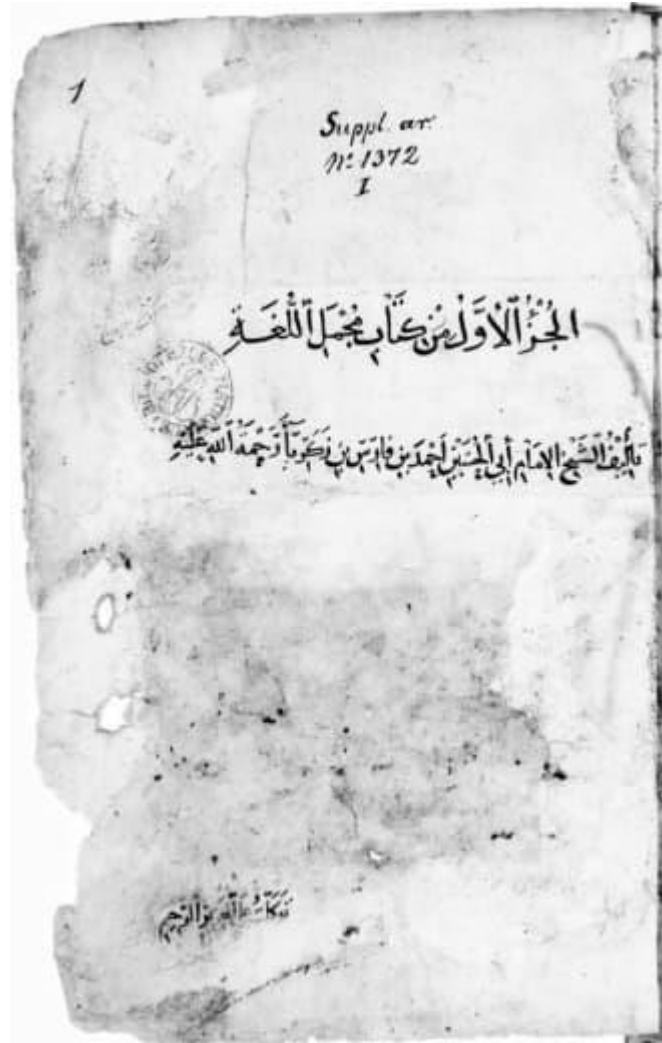 1
Suppl. ar.
Nº 1372
I
الجُزْءُ ٱلْأوَّلْ مِنْ كتَابِ مُجْمَلِ ٱللُّغَةِ
تأليفُ الشَّيْخِ الإمَامِ أبي الحُسَيْنِ أحْمَدَ بنِ فَارِسِ بنِ زَكَرِيَّاء رَحْمَةُ ٱللّهِ عَلَيْهِ